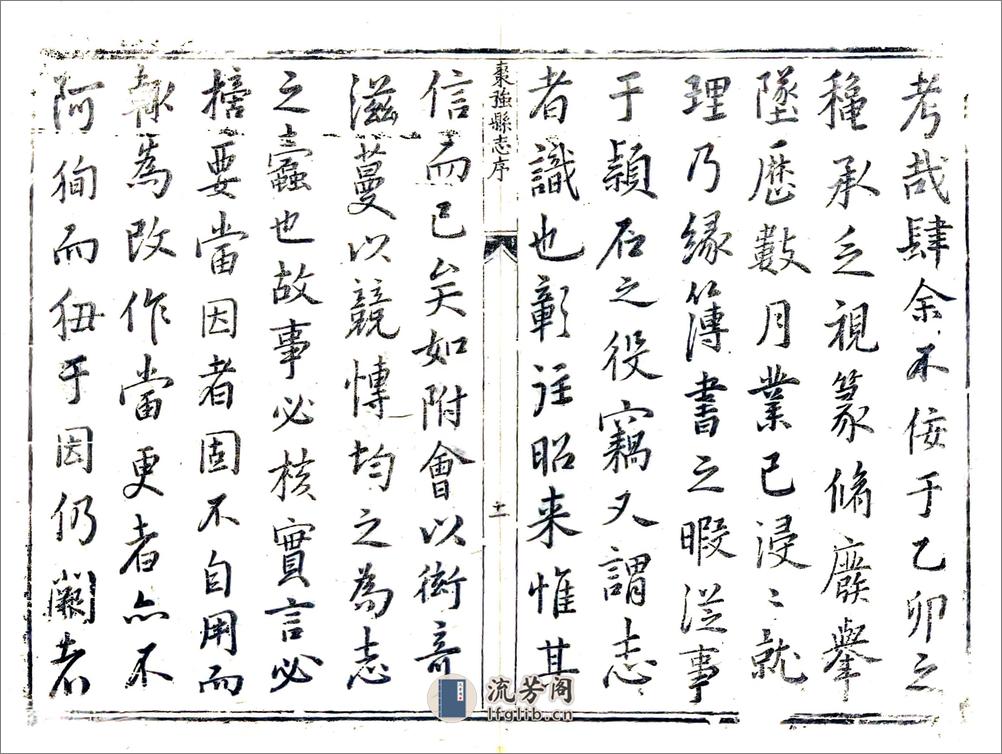 考哉肆余不佞于乙卯之
穐承乏視篆脩廢舉
墜歷數月業已浸〻就
理乃緣簿書之暇從事
于潁石之役竊又謂志
者識也彰往昭来惟其
棗強縣志序
十一
信而已矣如附會以衒奇
滋蔓以競愽均之為志
之蠧也故事必核實言必
㨿要當因者固不自用而
輙為改作當更者亦不
阿徇而狃于因仍闕者
流芳阁
lfglib.cn